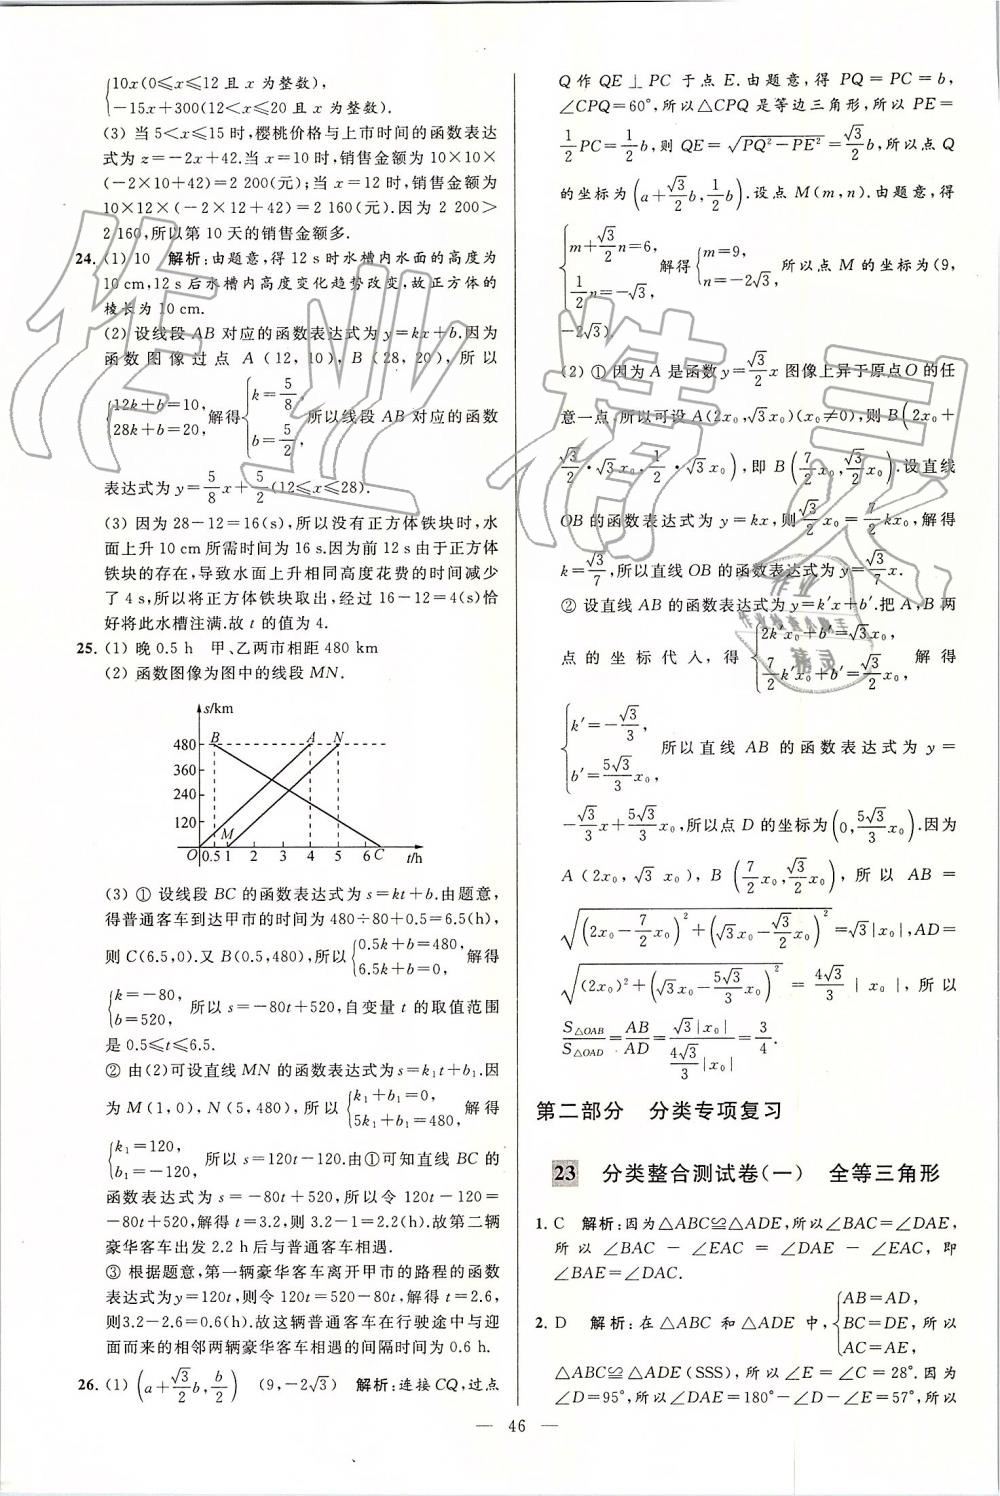 10x(0≤x≤12 且 x 为整数),
−15x+300(12<x≤20 且 x 为整数).
(3) 当 5<x≤15 时,樱桃价格与上市时间的函数表达
式为 z=−2x+42.当 x=10 时,销售金额为 10×10×
(−2×10+42)=2 200(元);当 x=12 时,销售金额为
10×12×(−2×12+42)=2 160(元).因为 2 200>
2 160,所以第 10 天的销售金额多.
24. (1) 10 解析:由题意,得 12 s 时水槽内水面的高度为
10 cm,12 s 后水槽内高度变化趋势改变,故正方体的
棱长为 10 cm.
(2) 设线段 AB 对应的函数表达式为 y=kx+b.因为
函数图像过点 A(12,10),B(28,20),所以
{12k+b=10, 28k+b=20, 解得 {k=5/8, b=5/2, 所以线段 AB 对应的函数
表达式为 y=5/8x+5/2(12≤x≤28).
(3) 因为 28−12=16(s),所以没有正方体铁块时,水
面上升 10 cm 所需时间为 16 s.因为前 12 s 由于正方体
铁块的存在,导致水面上升相同高度花费的时间减少
了 4 s,所以将正方体铁块取出,经过 16−12=4(s)恰
好将此水槽注满.故 t 的值为 4.
25. (1) 晚 0.5 h 甲、乙两市相距 480 km
(2) 函数图像为图中的线段 MN.
s/km
480 B A N
360
240
120 M
O 0.5 1 2 3 4 5 6 C t/h
(3) ① 设线段 BC 的函数表达式为 s=kt+b.由题意,
得普通客车到达甲市的时间为 480÷80+0.5=6.5(h),
则 C(6.5,0).又 B(0.5,480),所以 {0.5k+b=480, 6.5k+b=0, 解得
{k=−80, b=520, 所以 s=−80t+520,自变量 t 的取值范围
是 0.5≤t≤6.5.
② 由(2)可设直线 MN 的函数表达式为 s=k₁t+b₁.因
为 M(1,0),N(5,480),所以 {k₁+b₁=0, 5k₁+b₁=480, 解得
{k₁=120, b₁=−120, 所以 s=120t−120.由①可知直线 BC 的
函数表达式为 s=−80t+520,所以令 120t−120=
−80t+520,解得 t=3.2,则 3.2−1=2.2(h).故第二辆
豪华客车出发 2.2 h 后与普通客车相遇.
③ 根据题意,第一辆豪华客车离开甲市的路程的函数
表达式为y=120t,则令 120t=520−80t,解得 t=2.6,
则3.2−2.6=0.6(h).故这辆普通客车在行驶途中与迎
面而来的相邻两辆豪华客车相遇的间隔时间为 0.6 h.
26. (1) (a+√3/2b,b/2) (9,−2√3) 解析:连接 CQ,过点
Q 作 QE⊥PC 于点 E.由题意,得 PQ=PC=b,
∠CPQ=60°,所以△CPQ 是等边三角形,所以 PE=
1/2PC=1/2b,则 QE=√(PQ²−PE²)=√3/2b,所以点 Q
的坐标为(a+√3/2b,1/2b).设点 M(m,n).由题意,得
{m+√3/2n=6, 1/2n=−√3, 解得 {m=9, n=−2√3, 所以点 M 的坐标为(9,
−2√3).
(2) ① 因为 A 是函数 y=√3/2x 图像上异于原点O 的任
意一点,所以可设 A(2x₀,√3x₀)(x₀≠0),则 B(2x₀+
√3/2·√3x₀,1/2·√3x₀),即 B(7/2x₀,√3/2x₀).设直线
OB 的函数表达式为 y=kx,则√3/2x₀=7/2kx₀,解得
k=√3/7,所以直线 OB 的函数表达式为 y=√3/7x.
② 设直线 AB 的函数表达式为 y=k′x+b′.把 A,B 两
点的坐标代入,得 {2k′x₀+b′=√3x₀, 7/2k′x₀+b′=√3/2x₀, 解得
{k′=−√3/3, b′=5√3/3x₀, 所以直线 AB 的函数表达式为 y=
−√3/3x+5√3/3x₀,所以点 D 的坐标为(0,5√3/3x₀).因为
A(2x₀,√3x₀),B(7/2x₀,√3/2x₀),所以 AB=
√((2x₀−7/2x₀)²+(√3x₀−√3/2x₀)²)=√3|x₀|,AD=
√((2x₀)²+(√3x₀−5√3/3x₀)²)=4√3/3|x₀|,所以
S△OAB/S△OAD=AB/AD=√3|x₀|/(4√3/3|x₀|)=3/4.
第二部分 分类专项复习
23 分类整合测试卷(一) 全等三角形
1. C 解析:因为△ABC≌△ADE,所以∠BAC=∠DAE,
所以∠BAC−∠EAC=∠DAE−∠EAC,即
∠BAE=∠DAC.
2. D 解析:在△ABC 和△ADE 中,{AB=AD, BC=DE, AC=AE, 所以
△ABC≌△ADE(SSS),所以∠E=∠C=28°.因为
∠D=95°,所以∠DAE=180°−∠D−∠E=57°,所以
— 46 —
作业精灵